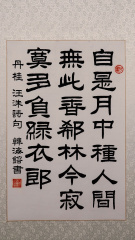 自是月中種人間
無此香郗林今寂
寞多負綠衣郎
丹桂 汪洙詩句 韓海書